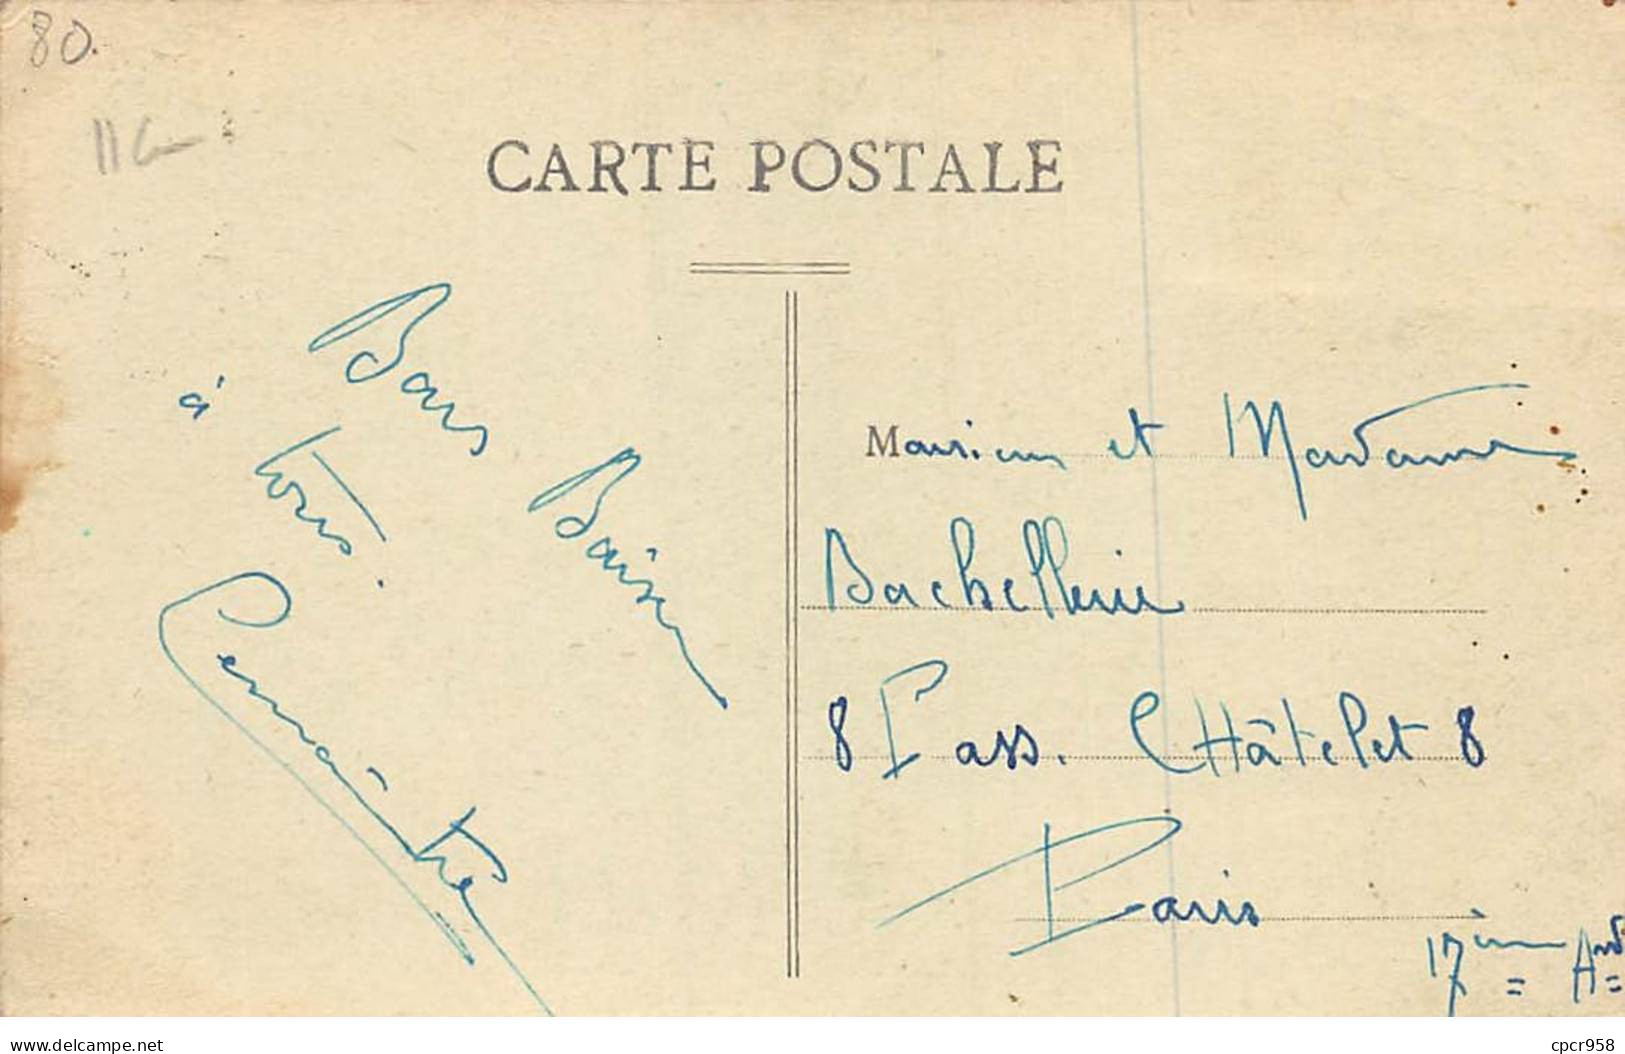 80.
CARTE POSTALE
Bons Baisers
à tous.
Lemaitre
Monsieur et Madame
Bachellerie
8 Pass. Châtelet 8
Paris
17ème Ard
www.delcampe.net
cpcr958